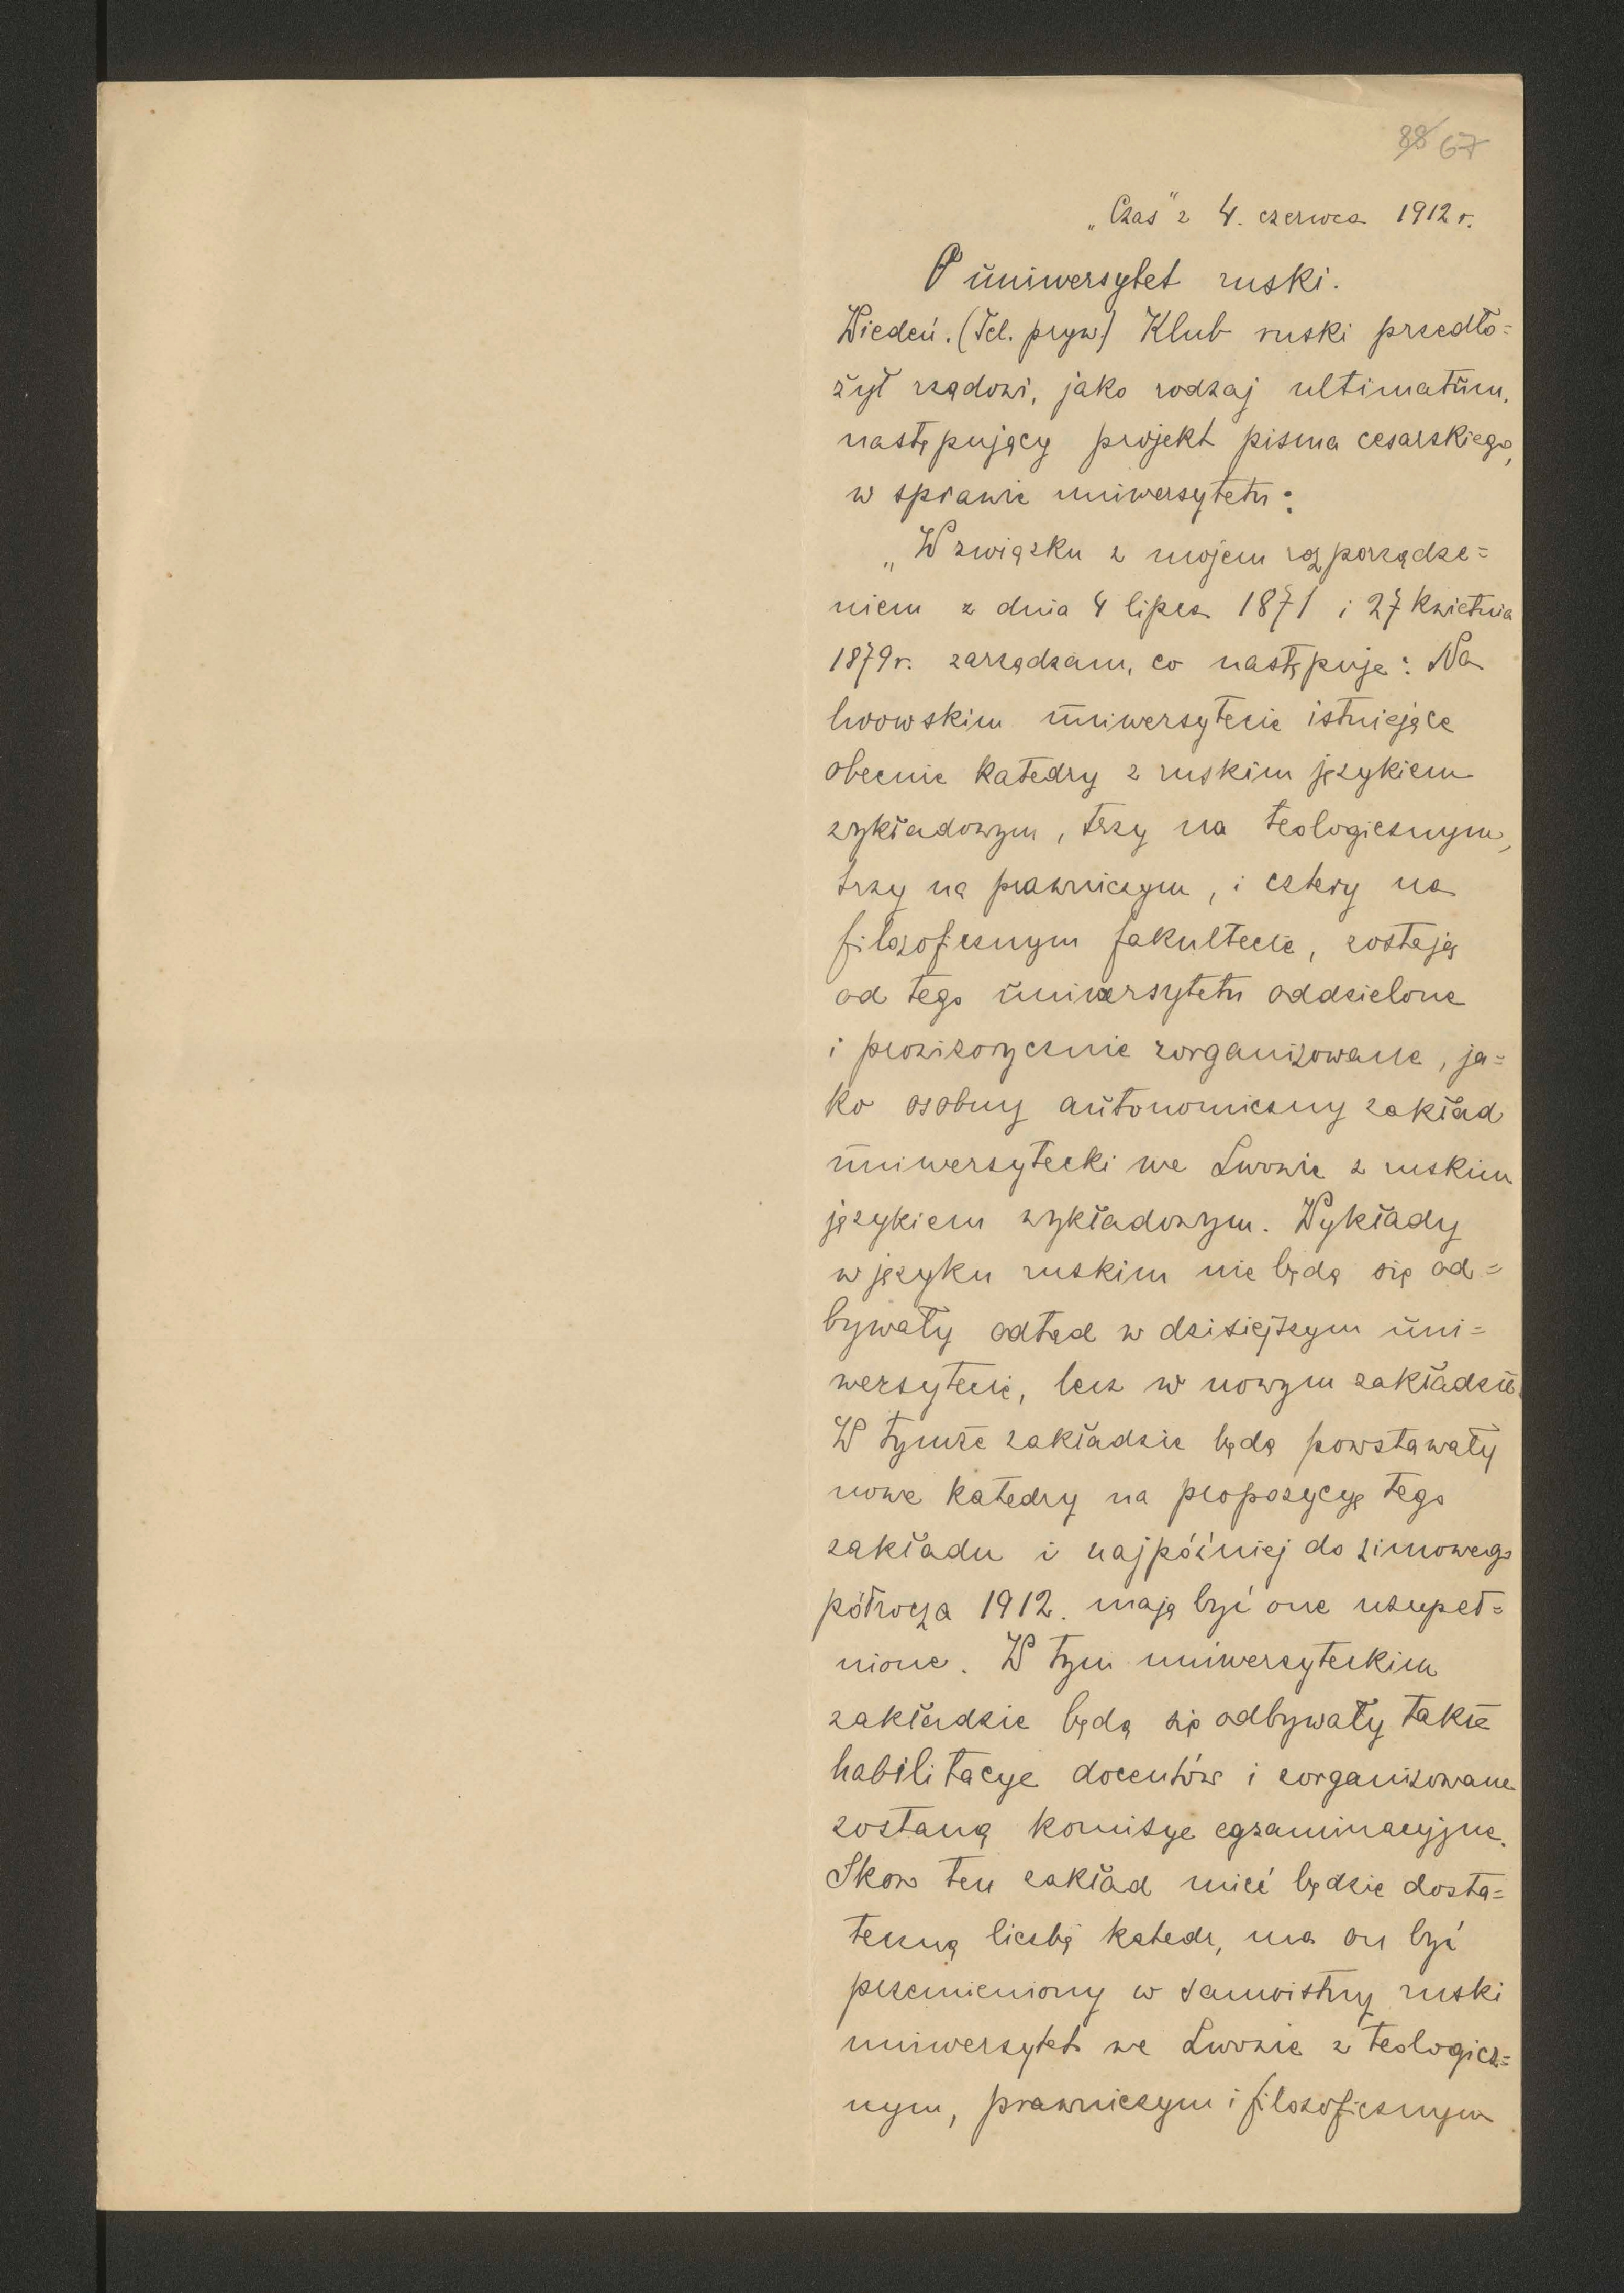 88 67
„Czas" z 4. czerwca 1912 r.
O uniwersytet ruski.
Wiedeń. (Tel. pryw.) Klub ruski przedło=
żył rządowi, jako rodzaj ultimatum,
następujący projekt pisma cesarskiego,
w sprawie uniwersytetu:
„W związku z mojem rozporządze=
niem z dnia 4 lipca 1871 i 27 kwietnia
1879 r. zarządzam, co następuje: Na
lwowskim uniwersytecie istniejące
obecnie katedry z ruskim językiem
wykładowym, trzy na teologicznym,
trzy na prawniczym, i cztery na
filozoficznym fakultecie, zostają
od tego uniwersytetu oddzielone
i prowizorycznie zorganizowane, ja=
ko osobny autonomiczny zakład
uniwersytecki we Lwowie z ruskim
językiem wykładowym. Wykłady
w języku ruskim nie będą się od=
bywały odtąd w dzisiejszym uni=
wersytecie, lecz w nowym zakładzie.
W tymże zakładzie będą powstawały
nowe katedry na propozycyę tego
zakładu i najpóźniej do zimowego
półrocza 1912. mają być one uzupeł=
nione. W tym uniwersyteckim
zakładzie będą się odbywały także
habilitacye docentów i zorganizowane
zostaną komisye egzaminacyjne.
Skoro ten zakład mieć będzie dosta=
teczną liczbę katedr, ma on być
przemieniony w samoistny ruski
uniwersytet we Lwowie z teologicz=
nym, prawniczym i filozoficznym